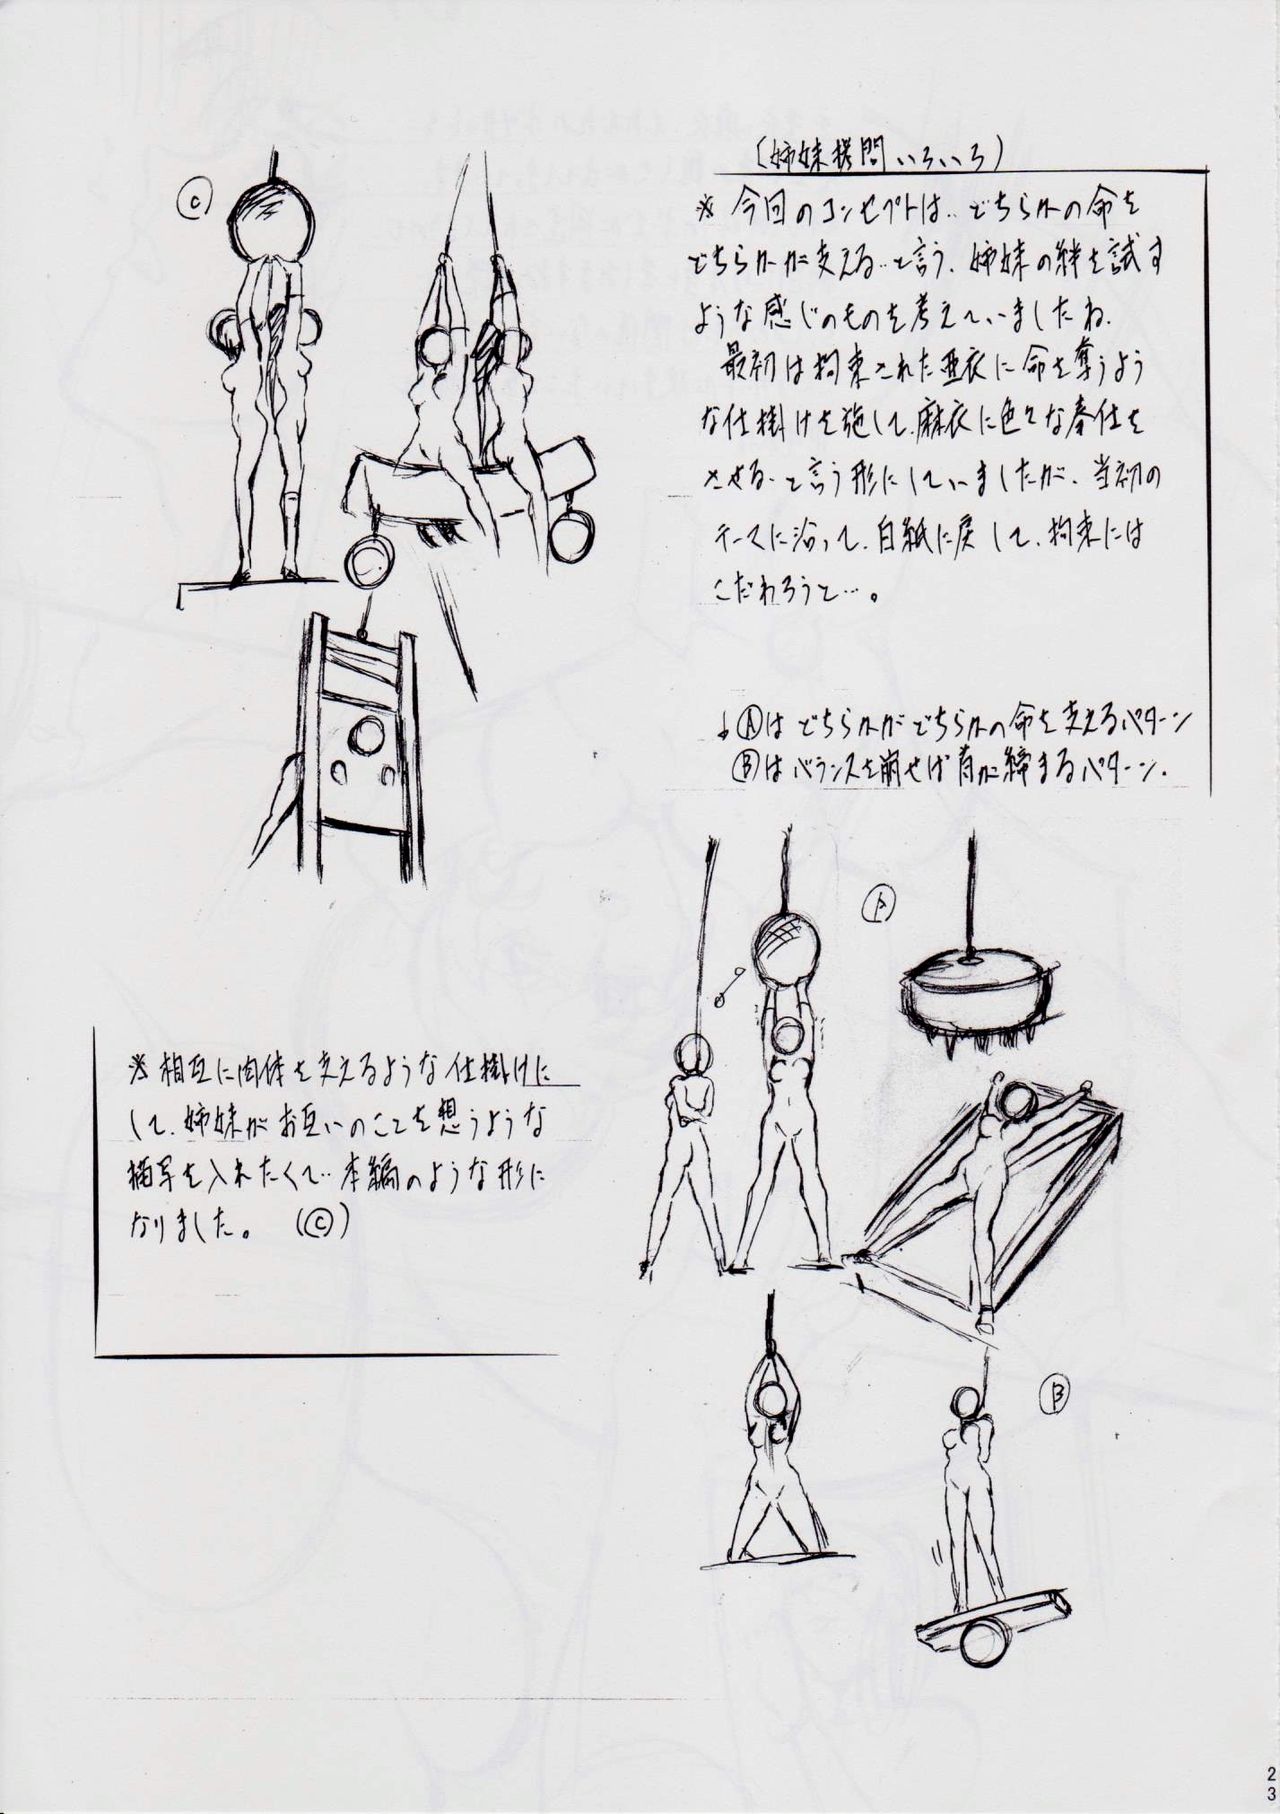 (姉妹拷問いろいろ)
※ 今回のコンセプトは‥どちらかの命を
どちらかが支える‥と言う、姉妹の絆を試す
ような感じのものを考えていましたね.
最初は拘束された亜衣に命を奪うよう
な仕掛けを施して、麻衣に色々な奉仕を
させる‥と言う形にしていましたが、当初の
テーマに沿って、白紙に戻して、拘束には
こだわろうと…。
↓Ⓐはどちらかがどちらかの命を支えるパターン
Ⓑはバランスを崩せば首が締まるパターン.
Ⓒ
Ⓐ
※相互に肉体を支えるような仕掛けに
して、姉妹がお互いのことを想うような
描写を入れたくて‥本編のような形に
なりました。 (Ⓒ)
Ⓑ
23